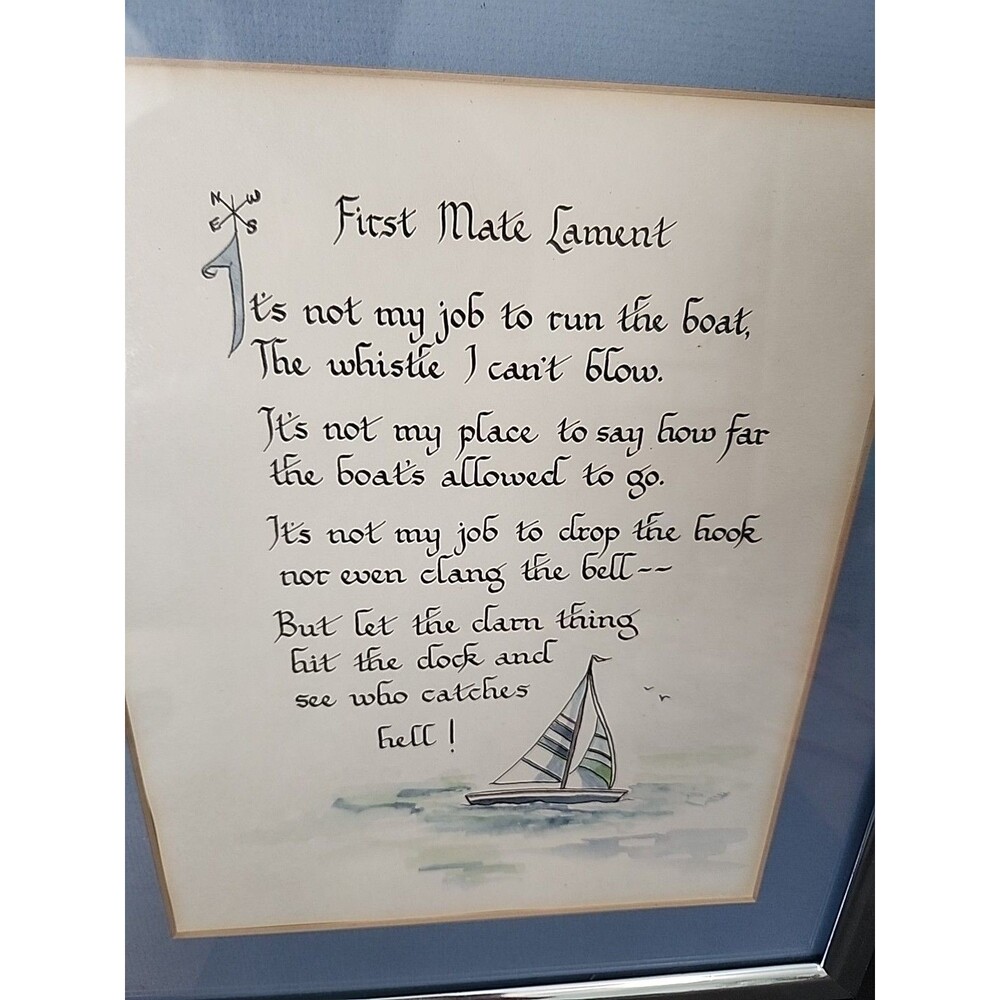 N W
E S
First Mate Lament
It's not my job to run the boat,
The whistle I can't blow.
It's not my place to say how far
the boat's allowed to go.
It's not my job to drop the hook
nor even clang the bell--
But let the darn thing
hit the dock and
see who catches
hell!